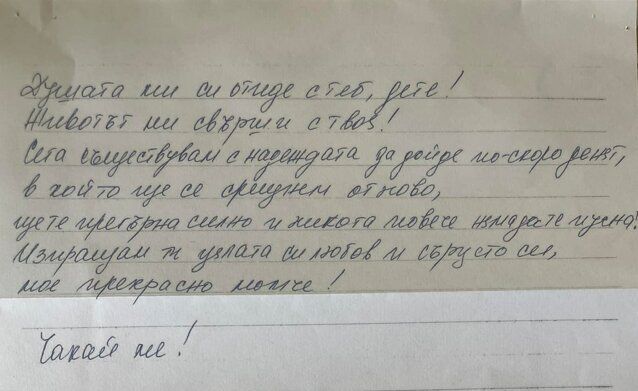 Душата ми си отиде с теб, дете!
Животът ми свърши с твоя!
Сега съществувам с надеждата да дойде по-скоро денят,
в който ще се срещнем отново,
ще те прегърна силно и никога повече няма да те пусна!
Изпращам ти цялата си любов и сърцето си,
мое прекрасно момче!
Чакай ме!